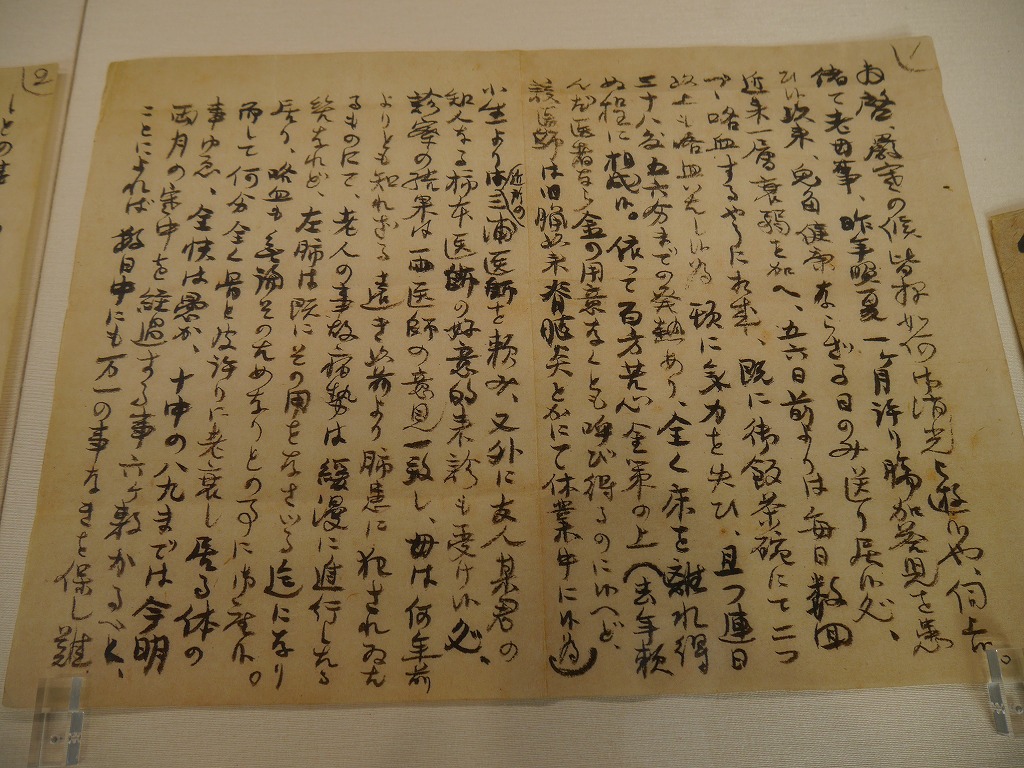 1
お啓、厳寒の候皆様如何御消光被遊候や、伺上候。
偖て老母事、昨年晩夏一ヶ月許り腸加答児を患
ひ以来、兎角健康ならざる日のみ送り居候処、
近来一層衰弱を加へ、五六日前よりは毎日数回
づゝ喀血するやうに相成、既に御飯茶碗にて二つ
以上も喀血いたし候為 頓に気力を失ひ、且つ連日
三十八度五六分までの発熱あり、全く床を離れ得
ぬ程に相成候。依って百方苦心金策の上(去年頼
んだ医者なら金の用意なくとも呼び得るのに候へど、
該医師は旧臘以来脊髄炎とかにて休業中に候為)
小生よりは近所の三浦医師を頼み、又外に友人某君の
知人なる柿本医師の好意的来診も受け候処、
診察の結果は両医師の意見一致し、母は何年前
よりとも知れざる遠き以前より肺患に犯されゐた
るものにて、老人の事故病勢は緩漫に進行したる
終なれど、左肺は既にその用をなさゞる迄になり
居り、喀血も無論そのためなりとの事に御座候。
而して何分全く骨と皮許りに老衰し居る体の
事ゆゑ、全快は愚か、十中の八九までは今明
両月の寒中を経過する事六ヶ敷かるべく、
ことによれば数日中にも万一の事なきを保し難
2